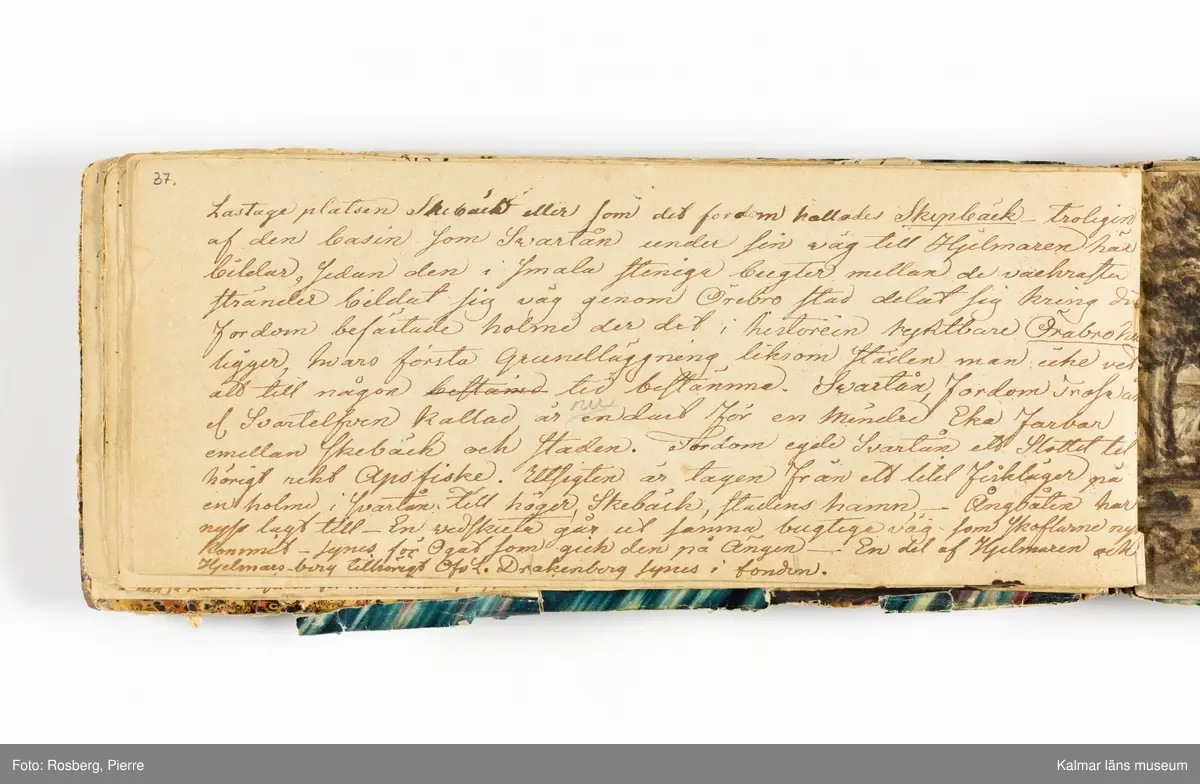 37.
Lastage platsen Skebäck eller som det fordom kallades Skepbäck – troligen
af den basin som Svartån under sin väg till Hjelmaren här
bildar, sedan den i smala steniga bugter mellan de vackraste
stränder bildat sig väg genom Örebro stad delat sig kring
fordom befästade holme der det i historein ryktbare Örebro
ligger, hvars första Grundläggning liksom staden man icke vet
att till någon bestämd tid bestämma. Svartån, fordom
el Svartelfven kallad är nu endast för en mindre Eka farbar
emellan Skebäck och staden. Fordom egde Svartån ett Slottet til
hörigt rikt Aspfiske. Utsigten är tagen från ett litet fiskläger på
en holme i Svartån. till höger, Skebäck, stadens hamn – Ångbåten har
nyss lagt till – En vedskuta går ut samma bugtiga väg som
kommit – synes för Ögat som gick den på Ängen – En del af Hjelmaren och
Hjelmars-berg tillhörigt Öfv L. Drakenberg synes i fonden.
Foto: Rosberg, Pierre
Kalmar läns museum